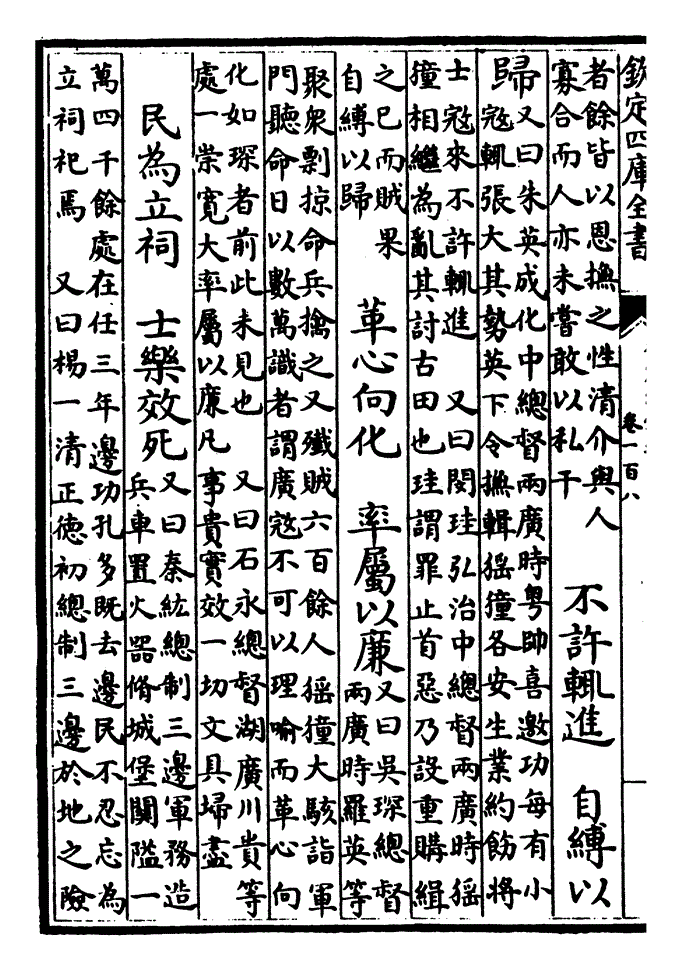 欽定四庫全書
卷一百八
者餘皆以恩撫之性清介與人
寡合而人亦未嘗敢以私干
不許輒進 自縛以
歸
又曰朱英成化中總督兩廣時粤帥喜邀功每有小
冦輒張大其勢英下令撫輯猺獞各安生業約飭將
士冦來不許輒進 又曰閔珪弘治中總督兩廣時猺
獞相繼為亂其討古田也珪謂罪止首惡乃設重購緝
之已而賊果
自縛以歸
革心向化 率屬以廉
又曰吳琛總督
兩廣時羅英等
聚衆剽掠命兵擒之又殲賊六百餘人猺獞大駭詣軍
門聽命日以數萬識者謂廣冦不可以理喻而革心向
化如琛者前此未見也 又曰石永總督湖廣川貴等
處一崇寛大率屬以廉凡事貴實效一切文具埽盡
民為立祠 士樂效死
又曰秦紘總制三邊軍務造
兵車置火器脩城堡關隘一
萬四千餘處在任三年邊功孔多既去邊民不忍忘為
立祠祀焉 又曰楊一清正德初總制三邊於地之險